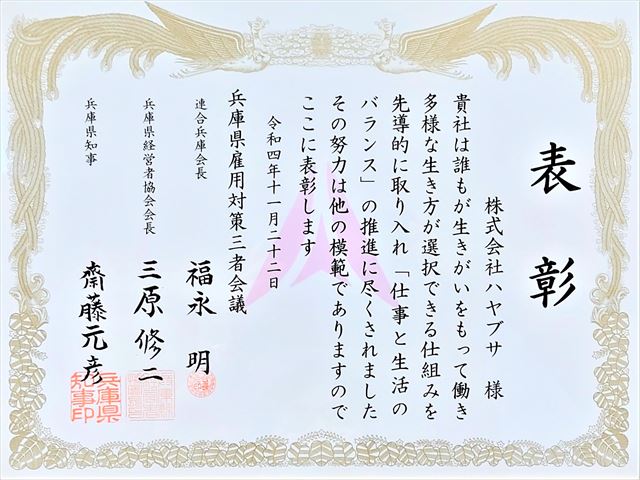 表彰
株式会社ハヤブサ 様
貴社は誰もが生きがいをもって働き
多様な生き方が選択できる仕組みを
先導的に取り入れ「仕事と生活の
バランス」の推進に尽くされました
その努力は他の模範でありますので
ここに表彰します
令和四年十一月二十二日
兵庫県雇用対策三者会議
連合兵庫会長 福永 明
兵庫県経営者協会会長 三原修二
兵庫県知事 齋藤元彦
兵庫県知事印